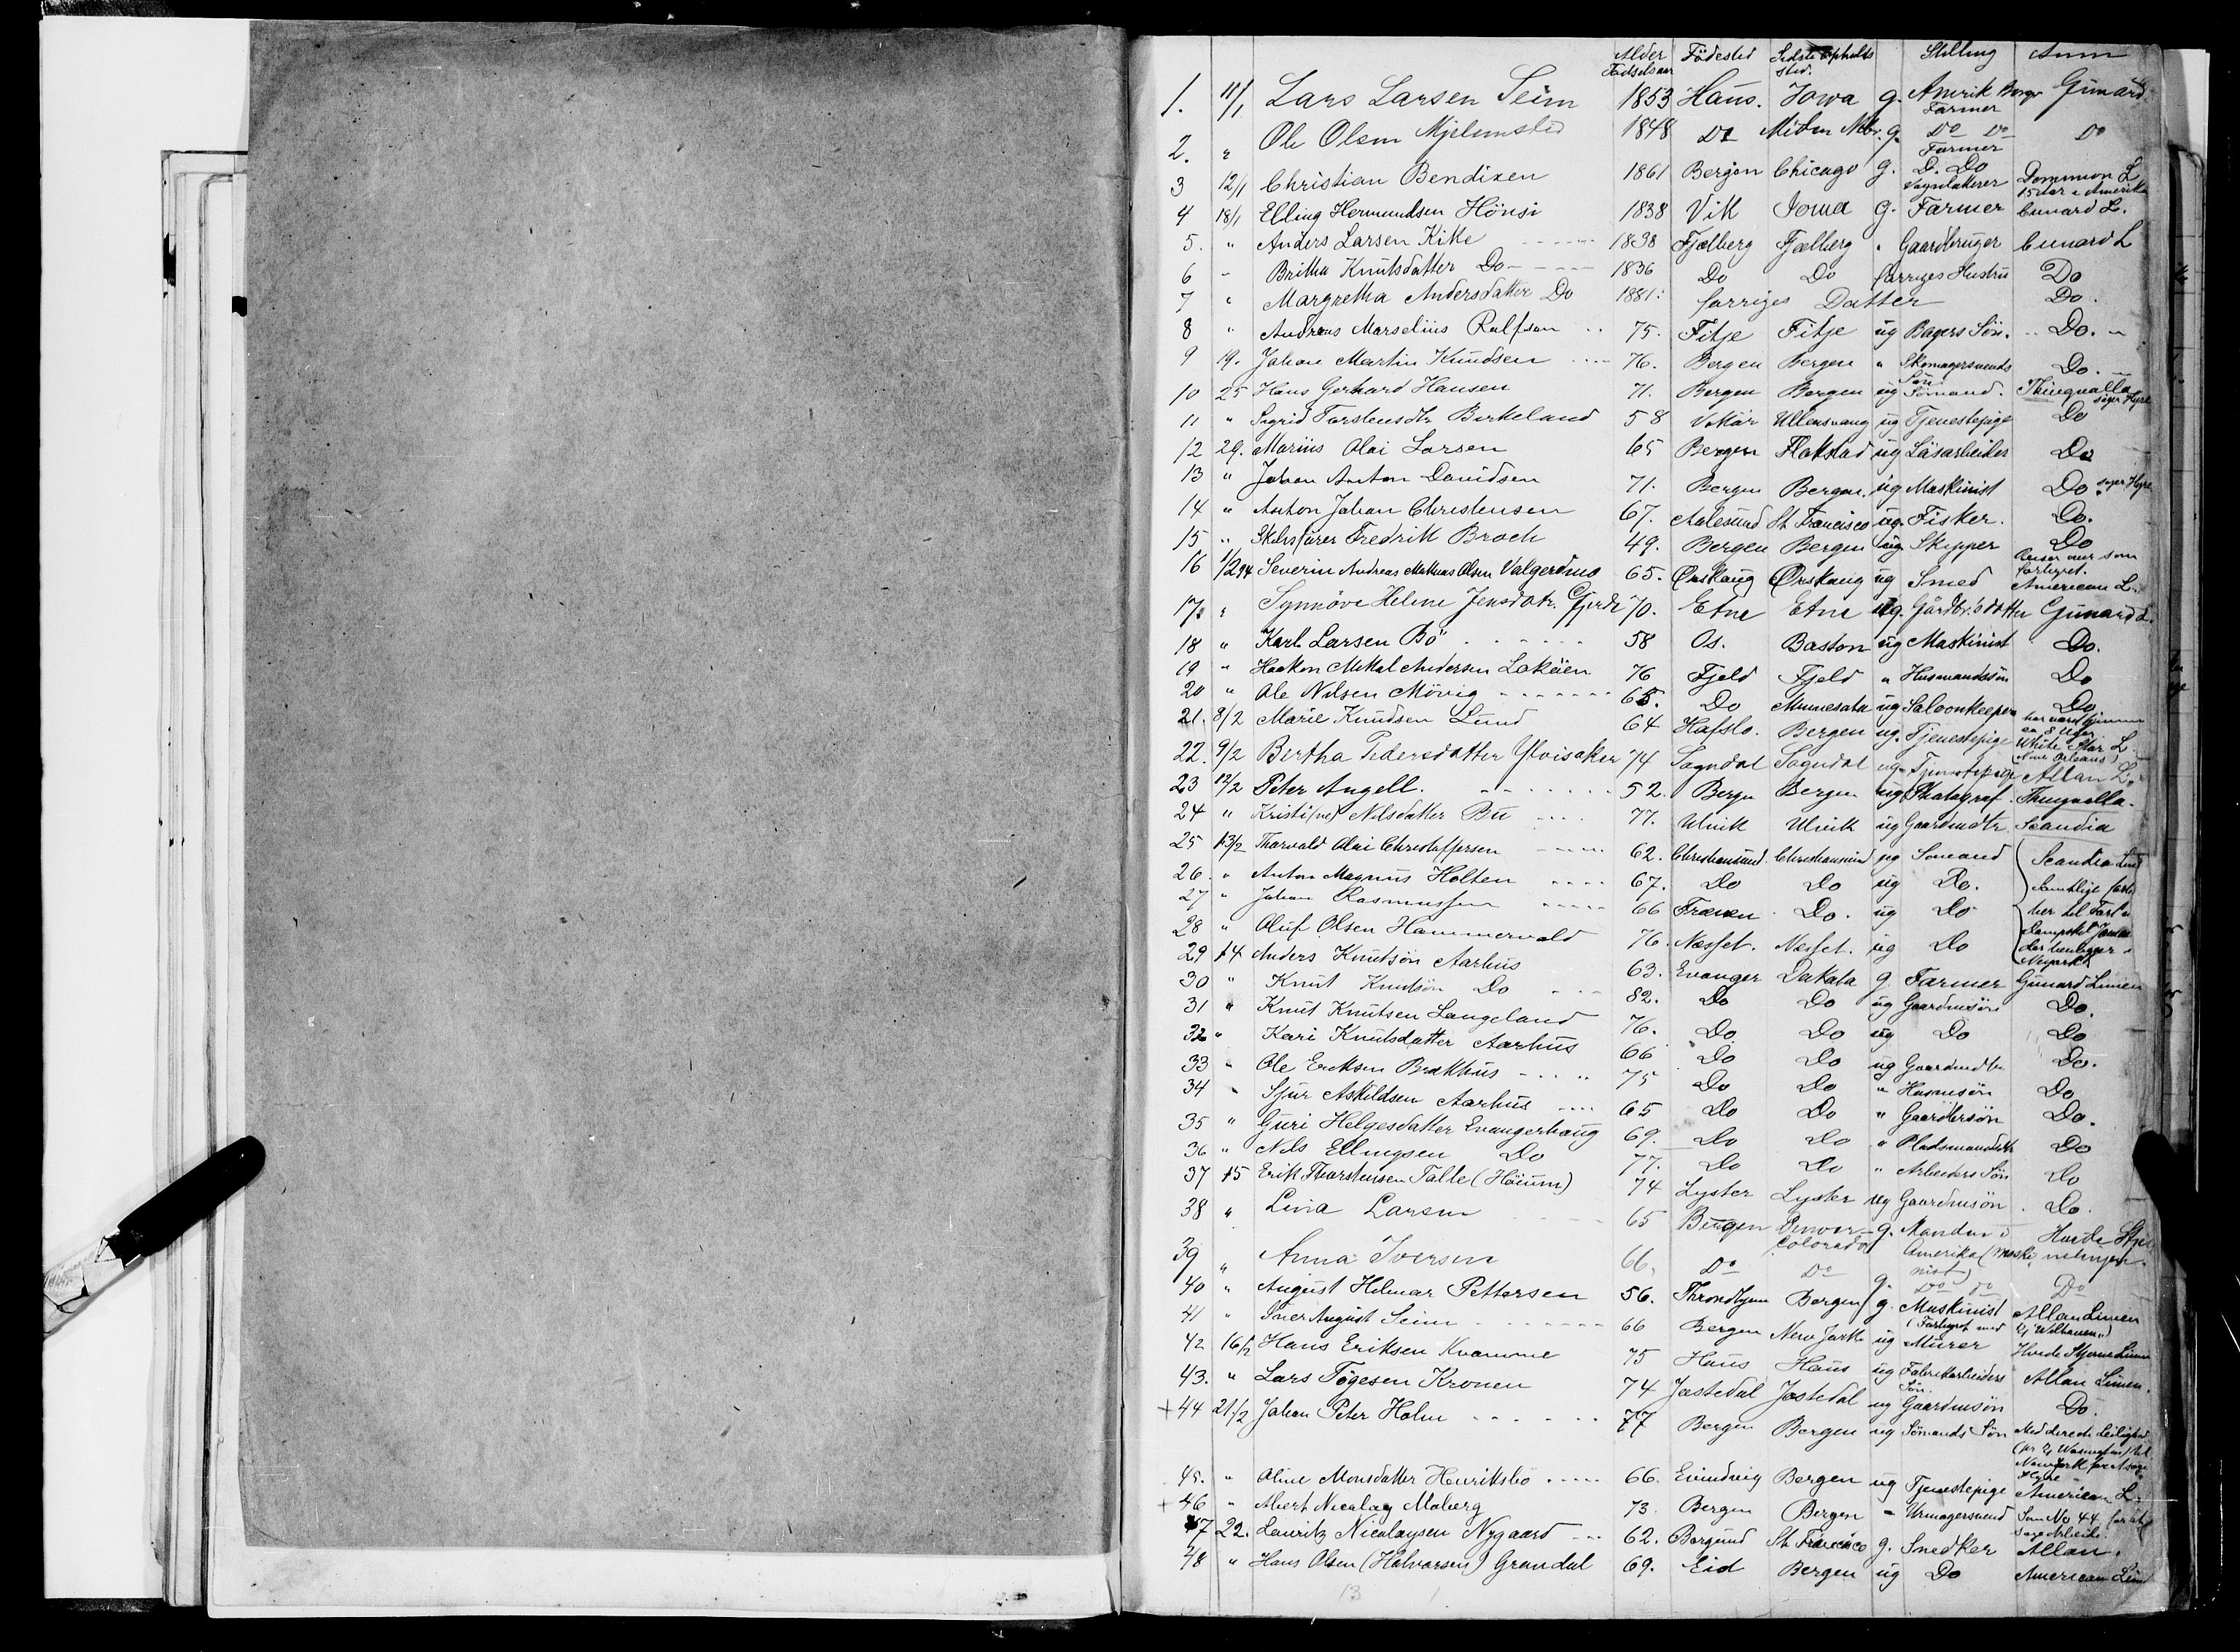 Alder Fødested Sidste Opholds Stilling Anm
Fødselsaar sted.
1. 11/1 Lars Larsen Seim 1853 Haus. Iowa g. Amerik Borger Farmer Gunard
2. " Ole Olsen Mjelemsted 1848 Do g. Do Do Farmer Do
3 12/1 Christian Bendixen 1861 Bergen Chicago g. Do. Do Dominion L 15 Aar i Amerika
4 18/1 Elling Hermundsen Hönsi 1838 Vik Iowa g. Farmer Cunard L.
5. " Anders Larsen Kike 1838 Fjelberg Fjelberg " Gaardbruger Cunard L
6 " Britha Knutsdatter Do 1836 Do Do forriges Hustru Do
7 " Margretha Andersdatter Do 1881. forriges Datter Do.
8 " Andreas Marselius Rolfsen 75. Fitje Fitje ug Bagers Søn. Do.
9 19. Johan Martin Knudsen 76. Bergen Bergen " Skomagersvends Søn Do.
10 25 Hans Gerhard Hansen 71. Bergen Bergen ug Sømand. Thingvalla søger Hyre
11 " Sigrid Torstensdtr Birkeland 58 Vikör Ullensvang ug Tjenestepige Do
12 29. Marius Olai Larsen 65 Bergen Flakstad ug Läsarbeider Do
13 " Johan Anton Davidsen 71. Bergen Bergen. ug Maskinist Do søger Hyre
14 " Anton Johan Christensen 67. Aalesund St Francisco ug. Fisker. Do.
15 " Fredrik Broch 49. Bergen Bergen ug Skipper Do
16 1/2 94 Severin Andreas Mathias Olsen Valgermo 65. Ørskaug Ørskaug ug Smed American L.
17. " Synnöve Helene Jensdatr. Gjerde 70. Etne Etne ug. Gårdbr.'s datter Gunard L.
18 " Karl Larsen Bö 58 Os. Boston ug Maskinist Do.
19 " Haakon Mikal Andersen Lokøen 76 Fjeld Fjeld " Husmandssön Do
20 " Ole Nilsen Mövig 65. Do Minnesota ug Saloonkeeper Do
21. 8/2 Marie Knudsen Lund 64 Hafslo. Bergen ug. Tjenestepige White Star L. (New Orleans)
22. 9/2 Bertha Pedersdatter Ylvisaker 74 Sogndal Sogndal ug Tjenestepige Allan L.
23 12/2 Peter Angell. 52. Bergen Bergen ug Photograf. Thingvalla.
24 " Kristi(ne) Nilsdatter Bu 77. Ulvik Ulvik ug Gaardmdtr. Scandia
25 13/2 Thorvald Olai Christoffersen 62. Christiansund. Christiansund ug Sømand Scandia
26. " Anton Magnus Holten 67. Do Do ug Do. Samtlige
27 " Johan Rasmussen 66 Frænen Do. ug Do
28 " Oluf Olsen Hammervold 76. Nesset. Nesset. ug Do
29 14 Anders Knutsön Aarhus 63. Evanger Dakota g. Farmer Gunard Linien
30 " Knut Knutsön Do 82. Do Do ug Gaardmsön Do.
31 " Knut Knutsen Langeland 76. Do Do ug Do Do
32 " Kari Knutsdatter Aarhus 66 Do Do ug Gaardmdtr Do.
33 " Ole Eriksen Brekhus 75 Do Do " Husmsön Do
34 " Sjur Askildsen Aarhus 65 Do Do " Gaardbrsön Do.
35 " Guri Helgesdatter Evangerhaug 69. Do Do " Pladsmandsdtr Do
36 " Nils Ellingsen Do 77. Do Do " Arbeiders Sön Do
37 15 Erik Thorstensen Talle (Höium) 74 Lyster Lyster ug Gaardmsön Do.
38 " Lina Larsen 65 Bergen Denver Colorado g. Manden i Amerika (Maskinist) Hvide Stjernelinjen.
39 " Anna Iversen 66. Do Do g. Do do Do
40 " August Hilmar Pettersen 56. Throndhjem Bergen g. Maskinist Allanlinien
41 " Iver August Seim 66 Bergen New York ug Murer Hvide Stjerne Linien
42 16/2 Hans Eriksen Kvamme 75 Haus Haus ug Fabrikarbeiders Sön. Allan Linien.
43. " Lars Tögesen Kronen 74 Jostedal Jostedal ug Gaardmsön Do.
+44 21/2 Johan Peter Holm 77 Bergen Bergen ug Sömands Sön Med directe Leilighed
45. " Oline Monsdatter Henriksbö 66. Evindvig Bergen ug Tjenestepige American L.
+46 " Albert Nicolay Moberg 73. Bergen Bergen " Urmagersvend Som No 44. for at søge Arbeide.
47 22. Lauritz Nicolaysen Nygaard 62. Borgund St Francisco g. Snedker Allan.
48 " Hans Olsen (Halvorsen) Grondal 69. Eid Bergen ug Do American Linie
13